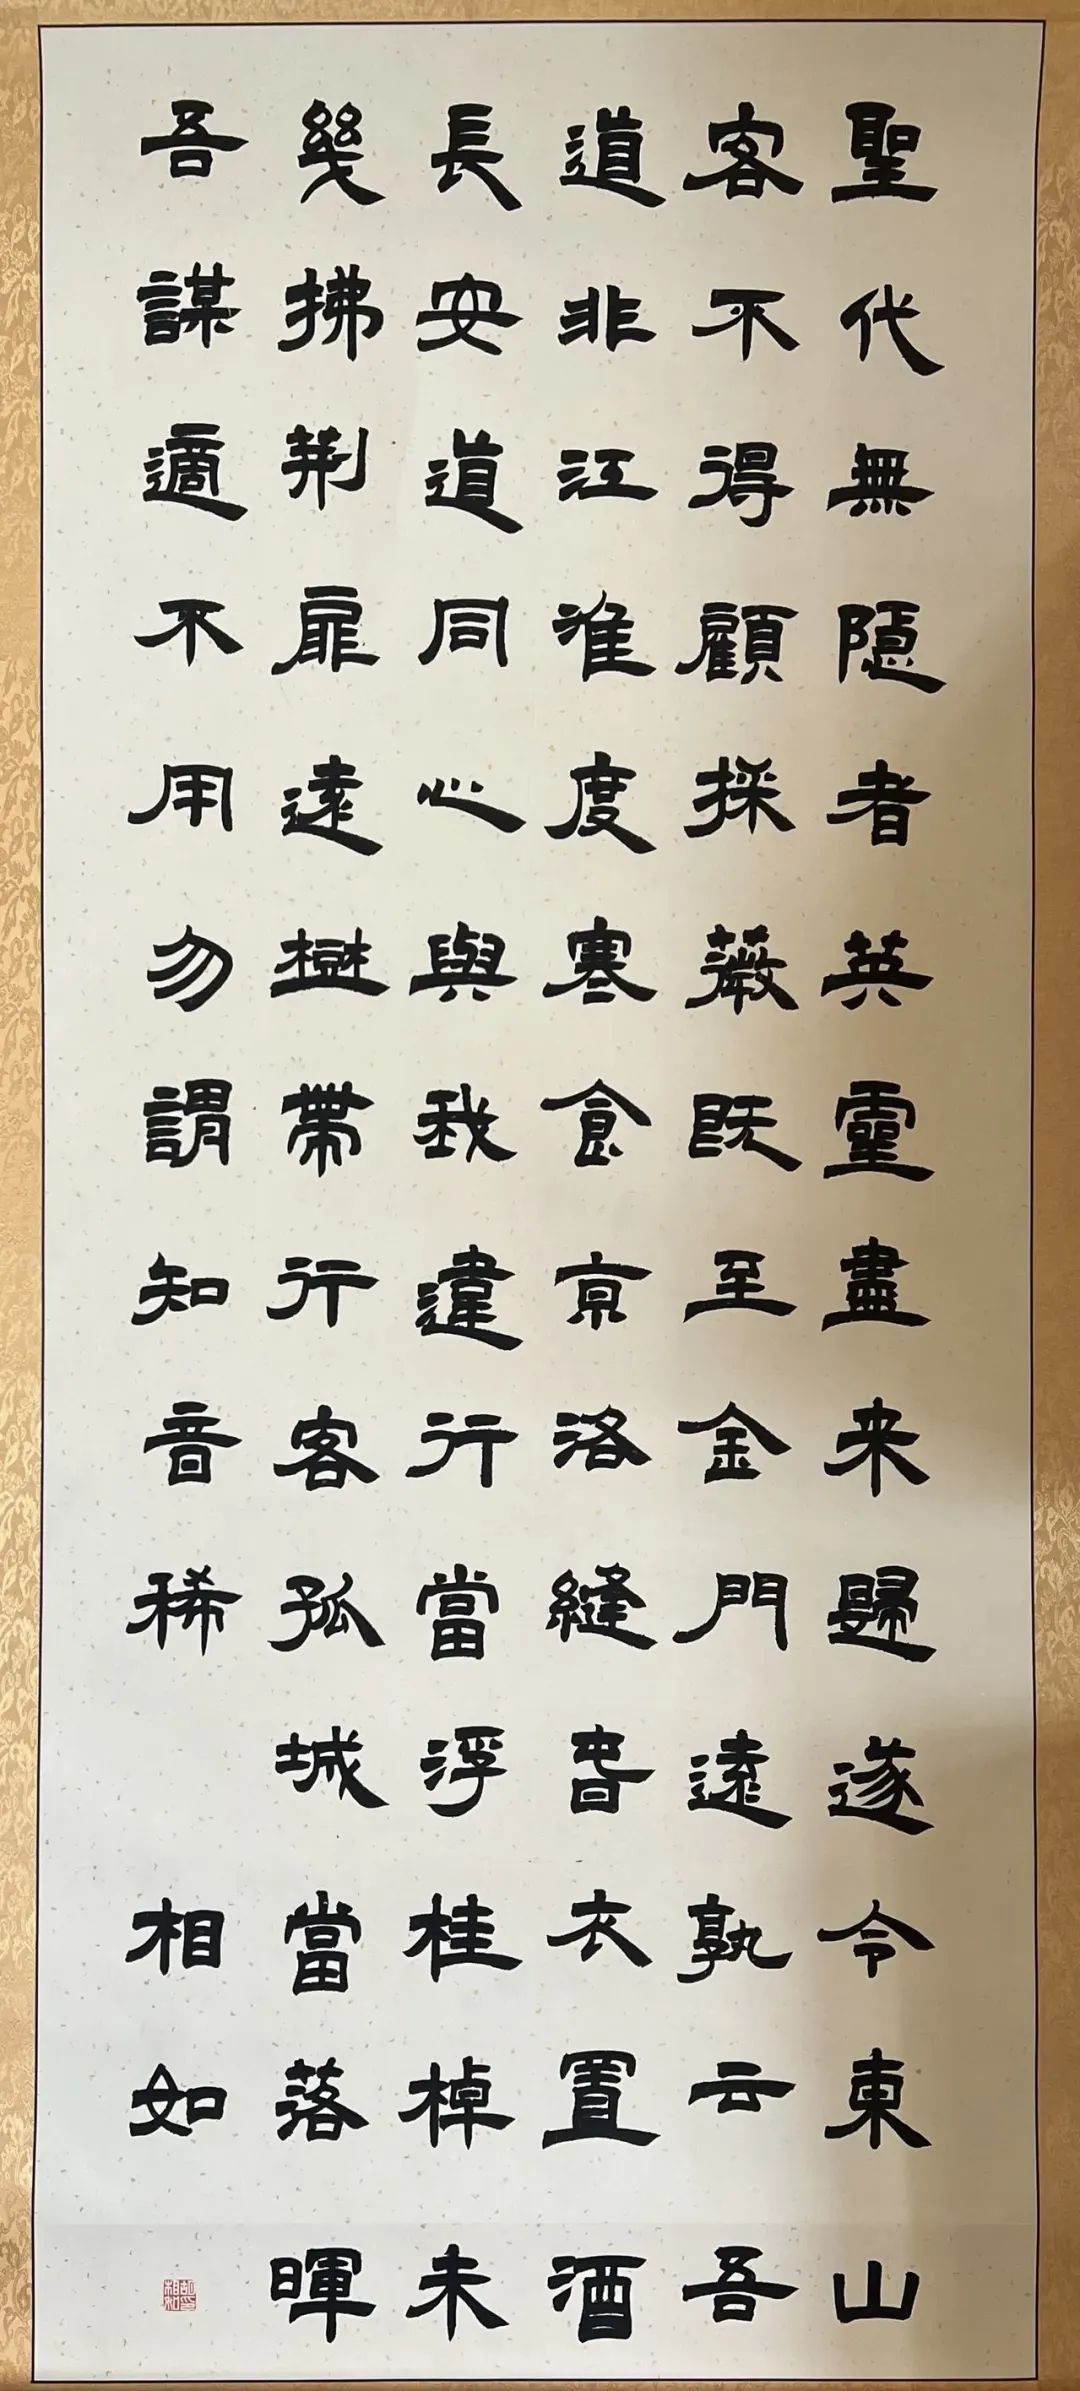 聖代無隱者英靈盡来歸遂令東山
客不得顧採薇既至金門遠孰云吾
道非江淮度寒食京洛縫春衣置酒
長安道同心與我違行當浮桂棹未
幾拂荆扉遠樹帶行客孤城當落暉
吾謀適不用勿謂知音稀 相如